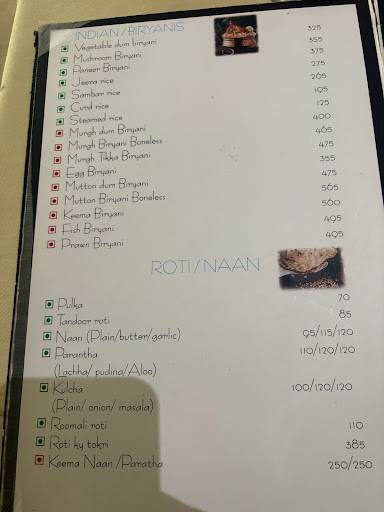 INDIAN/BIRYANIS
Vegetable dum biryani 325
Mushroom Biryani 355
Paneer Biryani 375
Jeera rice 275
Sambar rice 265
Curd rice 195
Steamed rice 125
Murgh dum Biryani 400
Murgh Biryani Boneless 465
Murgh Tikka Biryani 475
Egg Biryani 355
Mutton dum Biryani 475
Mutton Biryani Boneless 565
Keema Biryani 560
Fish Biryani 495
Prawn Biryani 495
ROTI/NAAN
Pulka 70
Tandoor roti 85
Naan (Plain/butter/garlic) 95/115/120
Parantha 110/120/120
(Lachha/ pudina/Aloo)
Kulcha 100/120/120
(Plain/ onion/ masala)
Roomali roti 110
Roti ky tokri 385
Keema Naan /Paratha 250/250